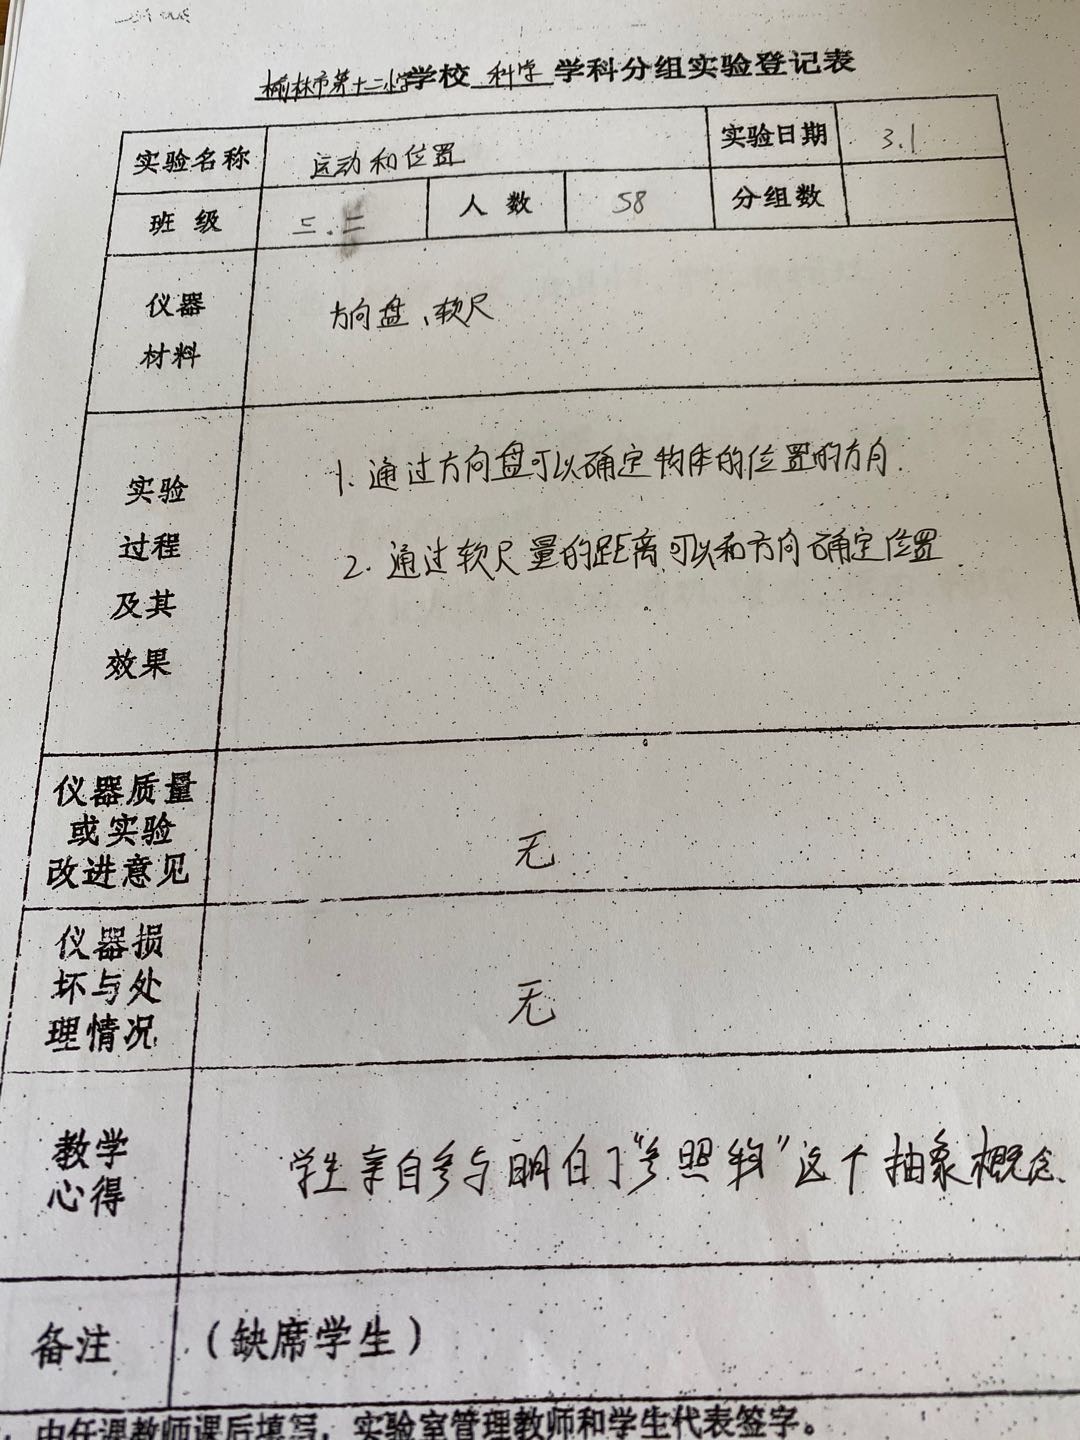 榆林市第十二小学学校 科学 学科分组实验登记表
实验名称 运动和位置 实验日期 3.1
班级 三.二 人数 58 分组数
仪器
材料
方向盘、软尺
实验
过程
及其
效果
1. 通过方向盘可以确定物体的位置的方向.
2. 通过软尺量的距离可以和方向确定位置
仪器质量
或实验
改进意见
无
仪器损
坏与处
理情况
无
教学
心得
学生亲自参与明白了“参照物”这个抽象概念.
备注 （缺席学生）
由任课教师课后填写，实验室管理教师和学生代表签字。